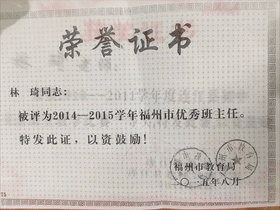 荣誉证书
林琦同志:
被评为2014—2015学年福州市优秀班主任。
特发此证,以资鼓励!
福州市教育局
二〇一五年八月